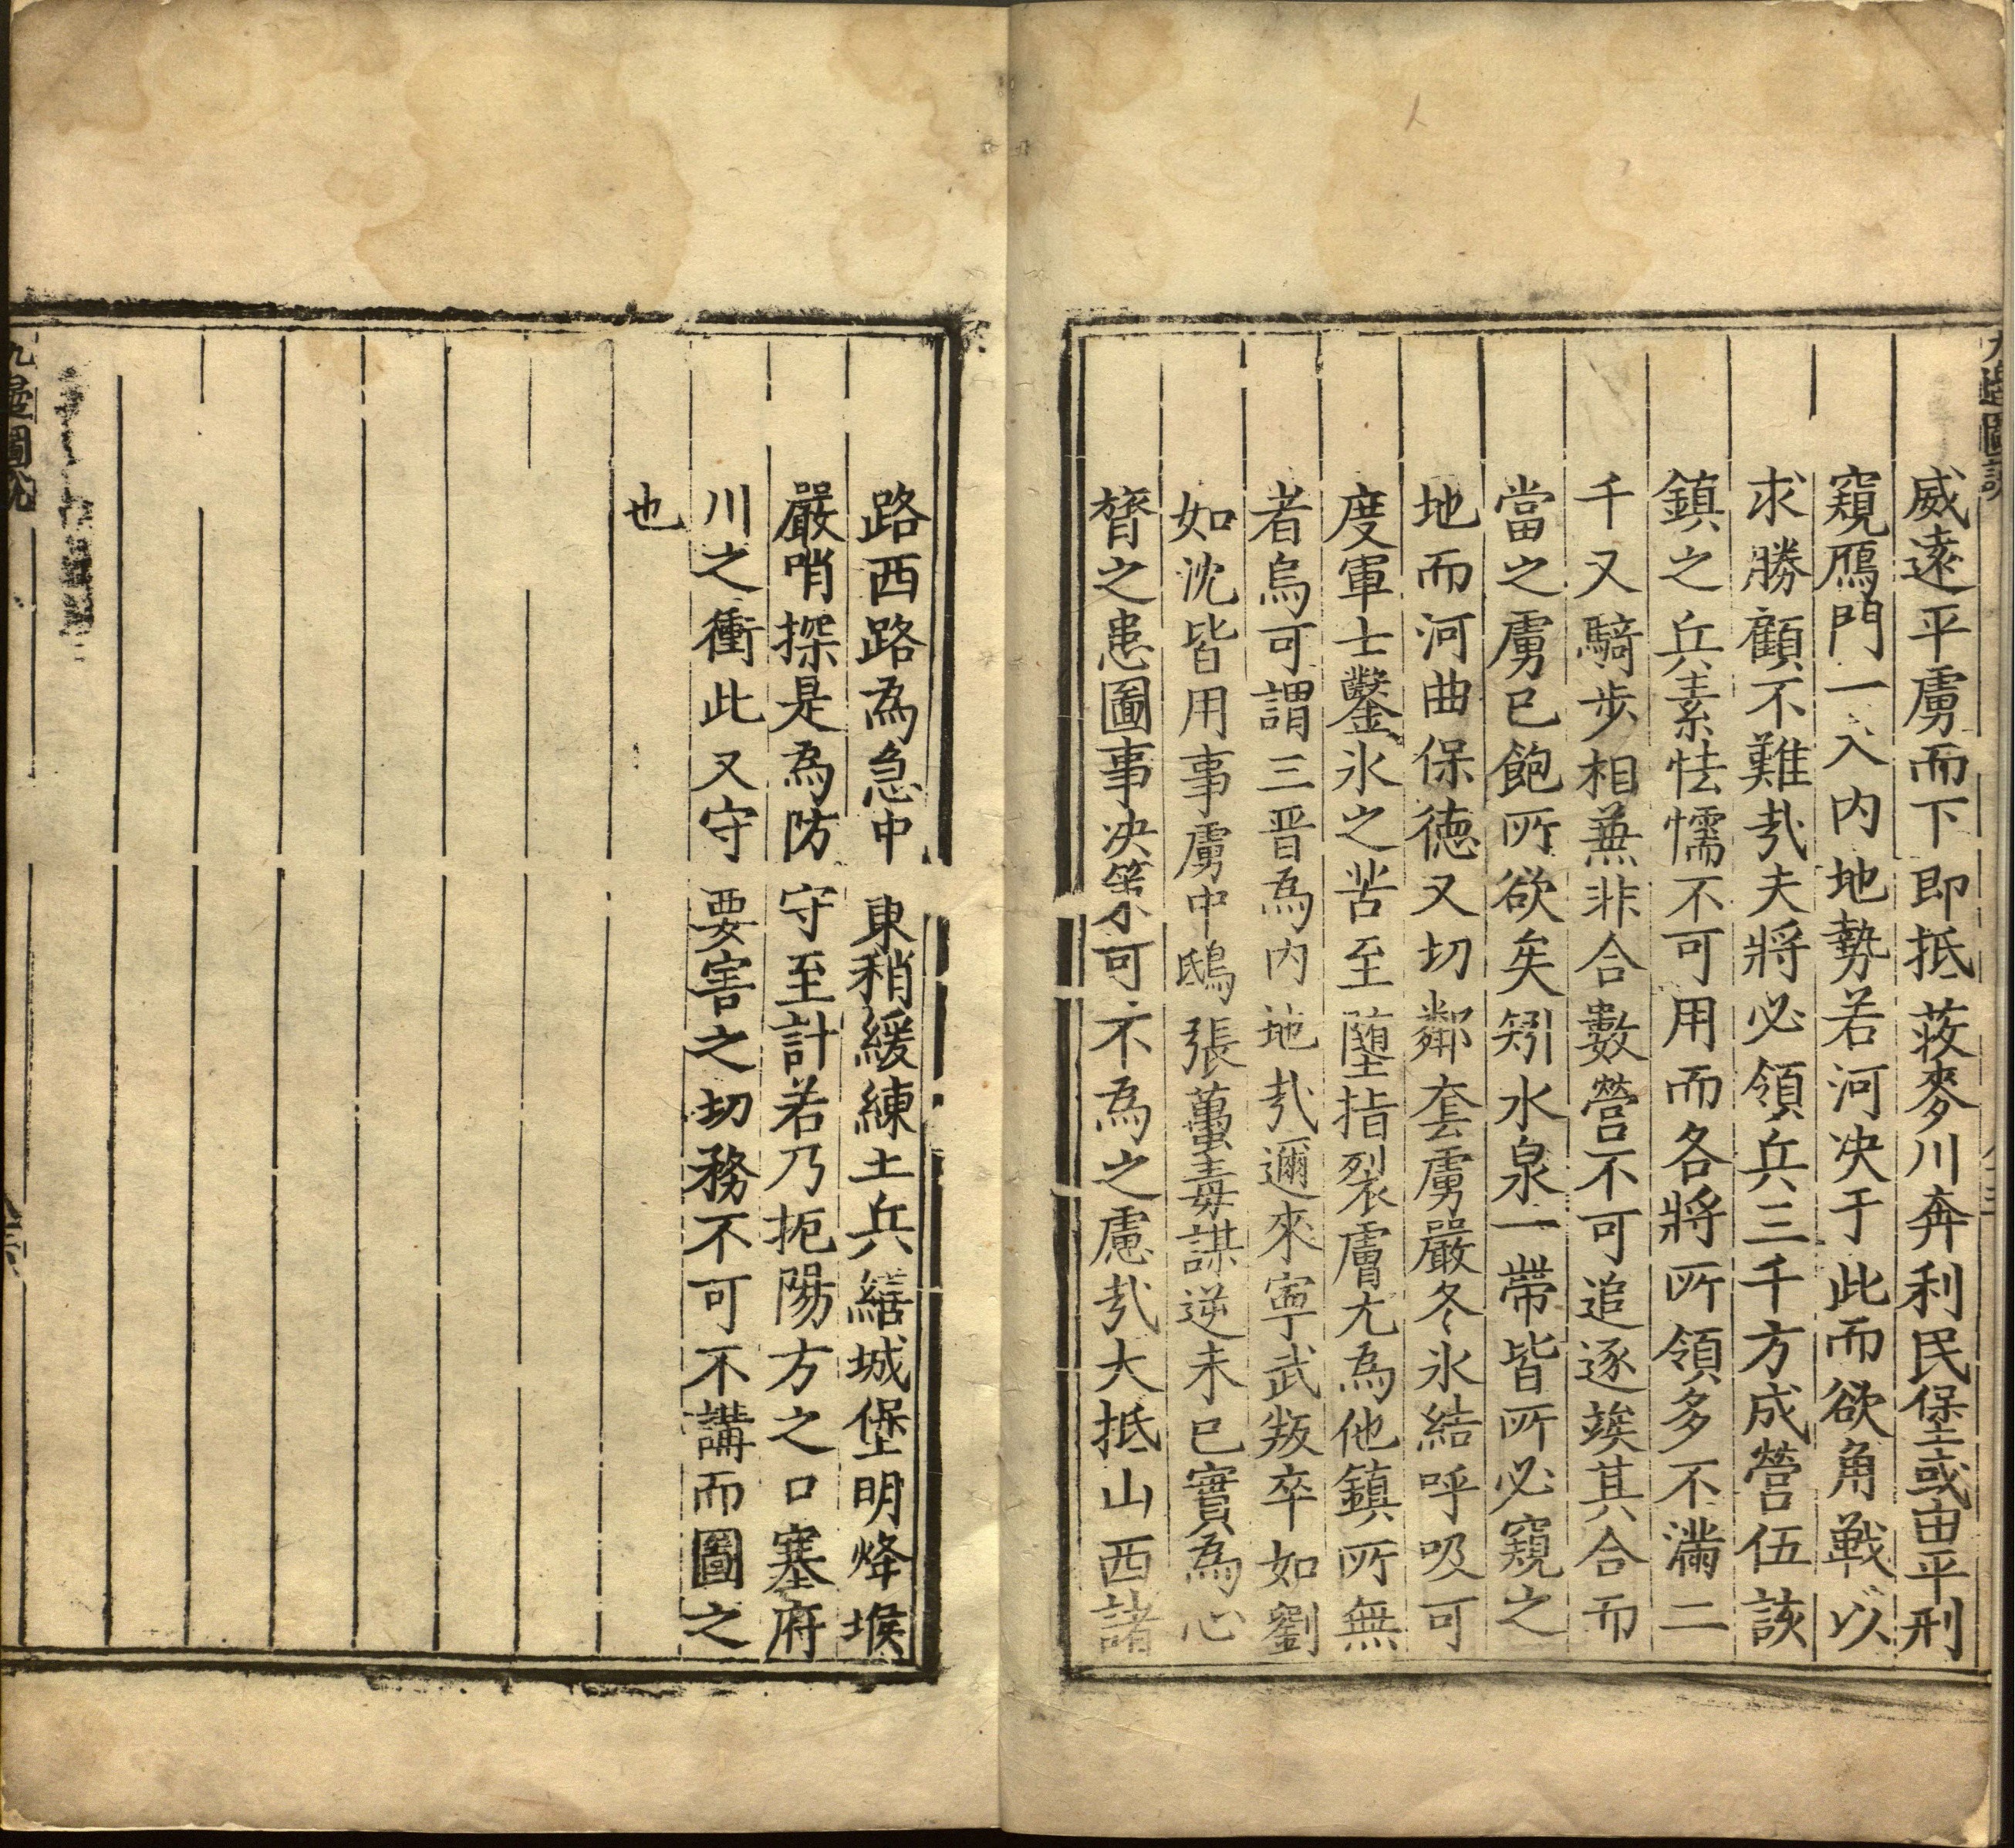 威遠平虜而下即抵荍麥川奔利民堡或由平刑
窺鴈門一入內地勢若河决于此而欲角戰以
求勝顧不難㢤夫將必領兵三千方成營伍該
鎮之兵素怯懦不可用而各將所領多不滿二
千又騎步相兼非合數營不可追逐竢其合而
當之虜已飽所欲矣矧水泉一帶皆所必窺之
地而河曲保德又切鄰套虜嚴冬氷結呼吸可
度軍士鑿氷之苦至墮指裂膚尤為他鎮所無
者烏可謂三晋為內地㢤邇來寧武叛卒如劉
如沈皆用事虜中鴟張蠆毒謀逆未已實為心
膂之患圖事决策不可不為之慮㢤大抵山西諸
路西路為急中東稍緩練土兵繕城堡明烽堠
嚴哨探是為防守至計若乃扼陽方之口塞府
川之衝此又守要害之切務不可不講而圖之
也
九邊圖說